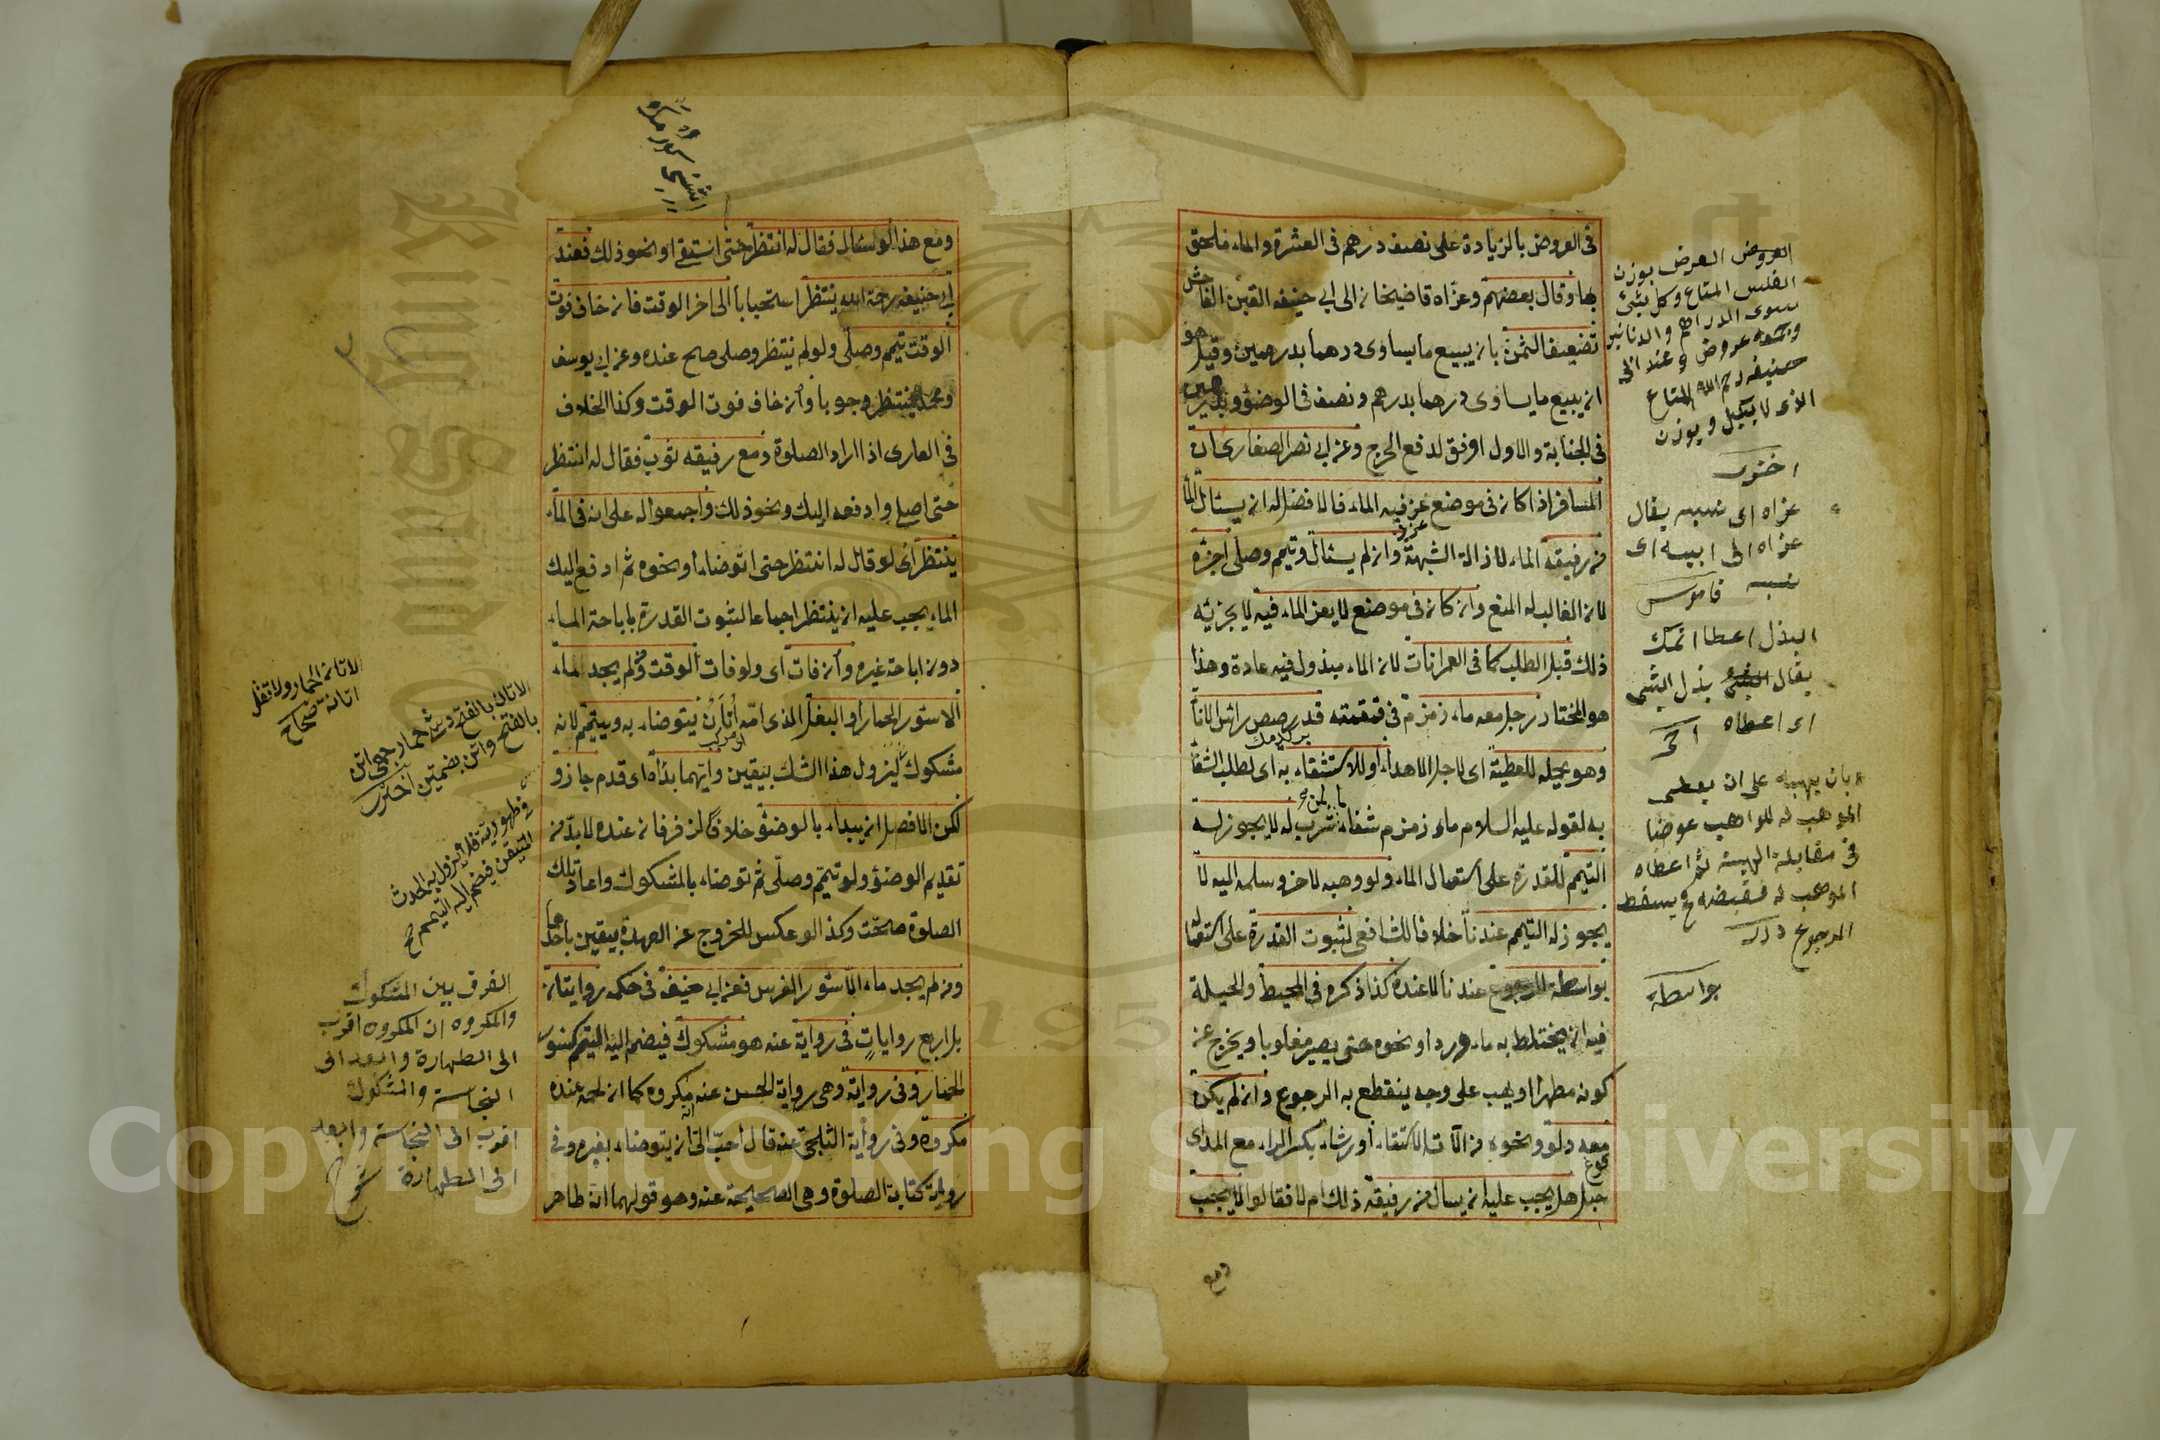 في العروض بالزيادة على نصف درهم في العشرة والماء ملحق
بها وقال بعضهم وعزاه قاضيخان الى ابي حنيفه الغبن الفاحش
تضعيف الثمن بان يبيع ما يساوى درهما بدرهمين وقيل هو
ان يبيع ما يساوى درهما بدرهم ونصف في الوضوء وبدرهمين
في الجنابة والاول اوفق لدفع الحرج وعن ابي نصر الصفار ان
المسافر اذا كان في موضع عز فيه الماء فالافضل له ان يسئال الماء
من رفيقه الماء لازالة الشبهة وان لم يسئال وتيمم وصلى اجزءه
لان الغالب له المنع وان كان في موضع لا يعز الماء فيه لا يجزئه
ذلك قبل الطلب كما في العمرانات لان الماء مبذول فيه عادة وهذا
هو المختار رجل معه ماء زمزم في قمقمته قد رصص راسل الاناء
وهو يحمله للعطية اى لاجل الاهداء او للاستشفاء به اى لطلب الشفا
به لقوله عليه السلام ماء زمزم شفاء لما شرب له لا يجوز له
التيمم للقدرة على استعمال الماء ولو وهبه لاخر وسلمه اليه لا
يجوز له التيمم عندنا خلافا للشافعي لثبوت القدرة على استعماله
بواسطة الرجوع عندنا لا عنده كذا ذكره في المحيط والحيلة
فيه ان يختلط به ماء ورد او نحوه حتى يصير مغلوبا ويخرج عن
كونه مطهرا او يهب على وجه ينقطع به الرجوع وان لم يكن
معه دلو ونحوه من الآت الاستقاء او رشاء بكسر الراء مع المد اى
حبل هل يجب عليه ان يسال من رفيقه ذلك ام لا فقالوا لا يجب
ومع
العروض العرض بوزن
الفلس المتاع وكل شئ
سوى الدراهم والدنانير
عروض وعند ابى
حنيفه رحمه الله المتاع
الذى لا يكيل ويوزن
اخترى
عزاه اى نسبه يقال
عزاه الى ابيه اى
نسبه قاموس
البذل اعطا اتمك
يقال بذل الشئ
اى اعطاه
بان يهبه على ان يعطى
الموهب له للواهب عوضا
في مقابلة الهبة ثم اعطاه
الموهب له فقبضه ويسقط
الرجوع
بواسطة
ومع هذا لو سئال فقال له انتظر حتى استقى او نحو ذلك فعند
ابي حنيفه رحمة الله ينتظر استحبابا الى اخر الوقت فان خاف فوت
الوقت تيمم وصلى ولو لم ينتظر وصلى صح عنده وعن ابي يوسف
ومحمد ينتظر وجوبا وان خاف فوت الوقت وكذا الخلاف
في العارى اذا اراد الصلوة ومع رفيقه ثوب فقال له انتظر
حتى اصلى وادفعه اليك ونحو ذلك واجمعوا له على انه في الماء
ينتظر اى لو قال له انتظر حتى اتوضاء او نحوه ثم ادفع اليك
الماء يجب عليه ان ينتظر اجماعا لثبوت القدرة باباحة الماء
دون اباحة غيره وان فات اى ولو فات الوقت ولم يجد الماء
الا سئور الحمار او البغل الذى امه اتان يتوضاء به ويتيمم لانه
مشكوك ليزول هذا الشك بيقين وايهما بداه اى قدم جاز و
لكن الافضل ان يبداء بالوضوء خلافا لزفر فان عنده لابد من
تقديم الوضوء ولو تيمم وصلى ثم توضاء بالمشكوك واعاد تلك
الصلوة صحت وكذا لو عكس للخروج عن العهدة بيقين باحدهما
ومن لم يجد ماء الا سئور الفرس فعن ابي حنيفة في حكمه روايتان
بل اربع روايات في رواية عنه هو مشكوك فيضم اليه التيمم كسئور
الحمار وفي رواية وهى رواية الحسن عنه مكروه كما ان لحمه عنده
مكروه وفي رواية البلخى عنه قال احب الى ان يتوضاء بغيره وفي
رواية كتاب الصلوة وهى الصحيحة عنه وهو قولهما انه طاهر
الاتان الحمار ولا تقل
اتانة صحاح
الفرق بين المشكوك
والمكروه ان المكروه اقرب
الى الطهارة وابعد الى
النجاسة والمشكوك
اقرب الى النجاسة وابعد
الى الطهارة
King Saud University
1957
Copyright © King Saud University